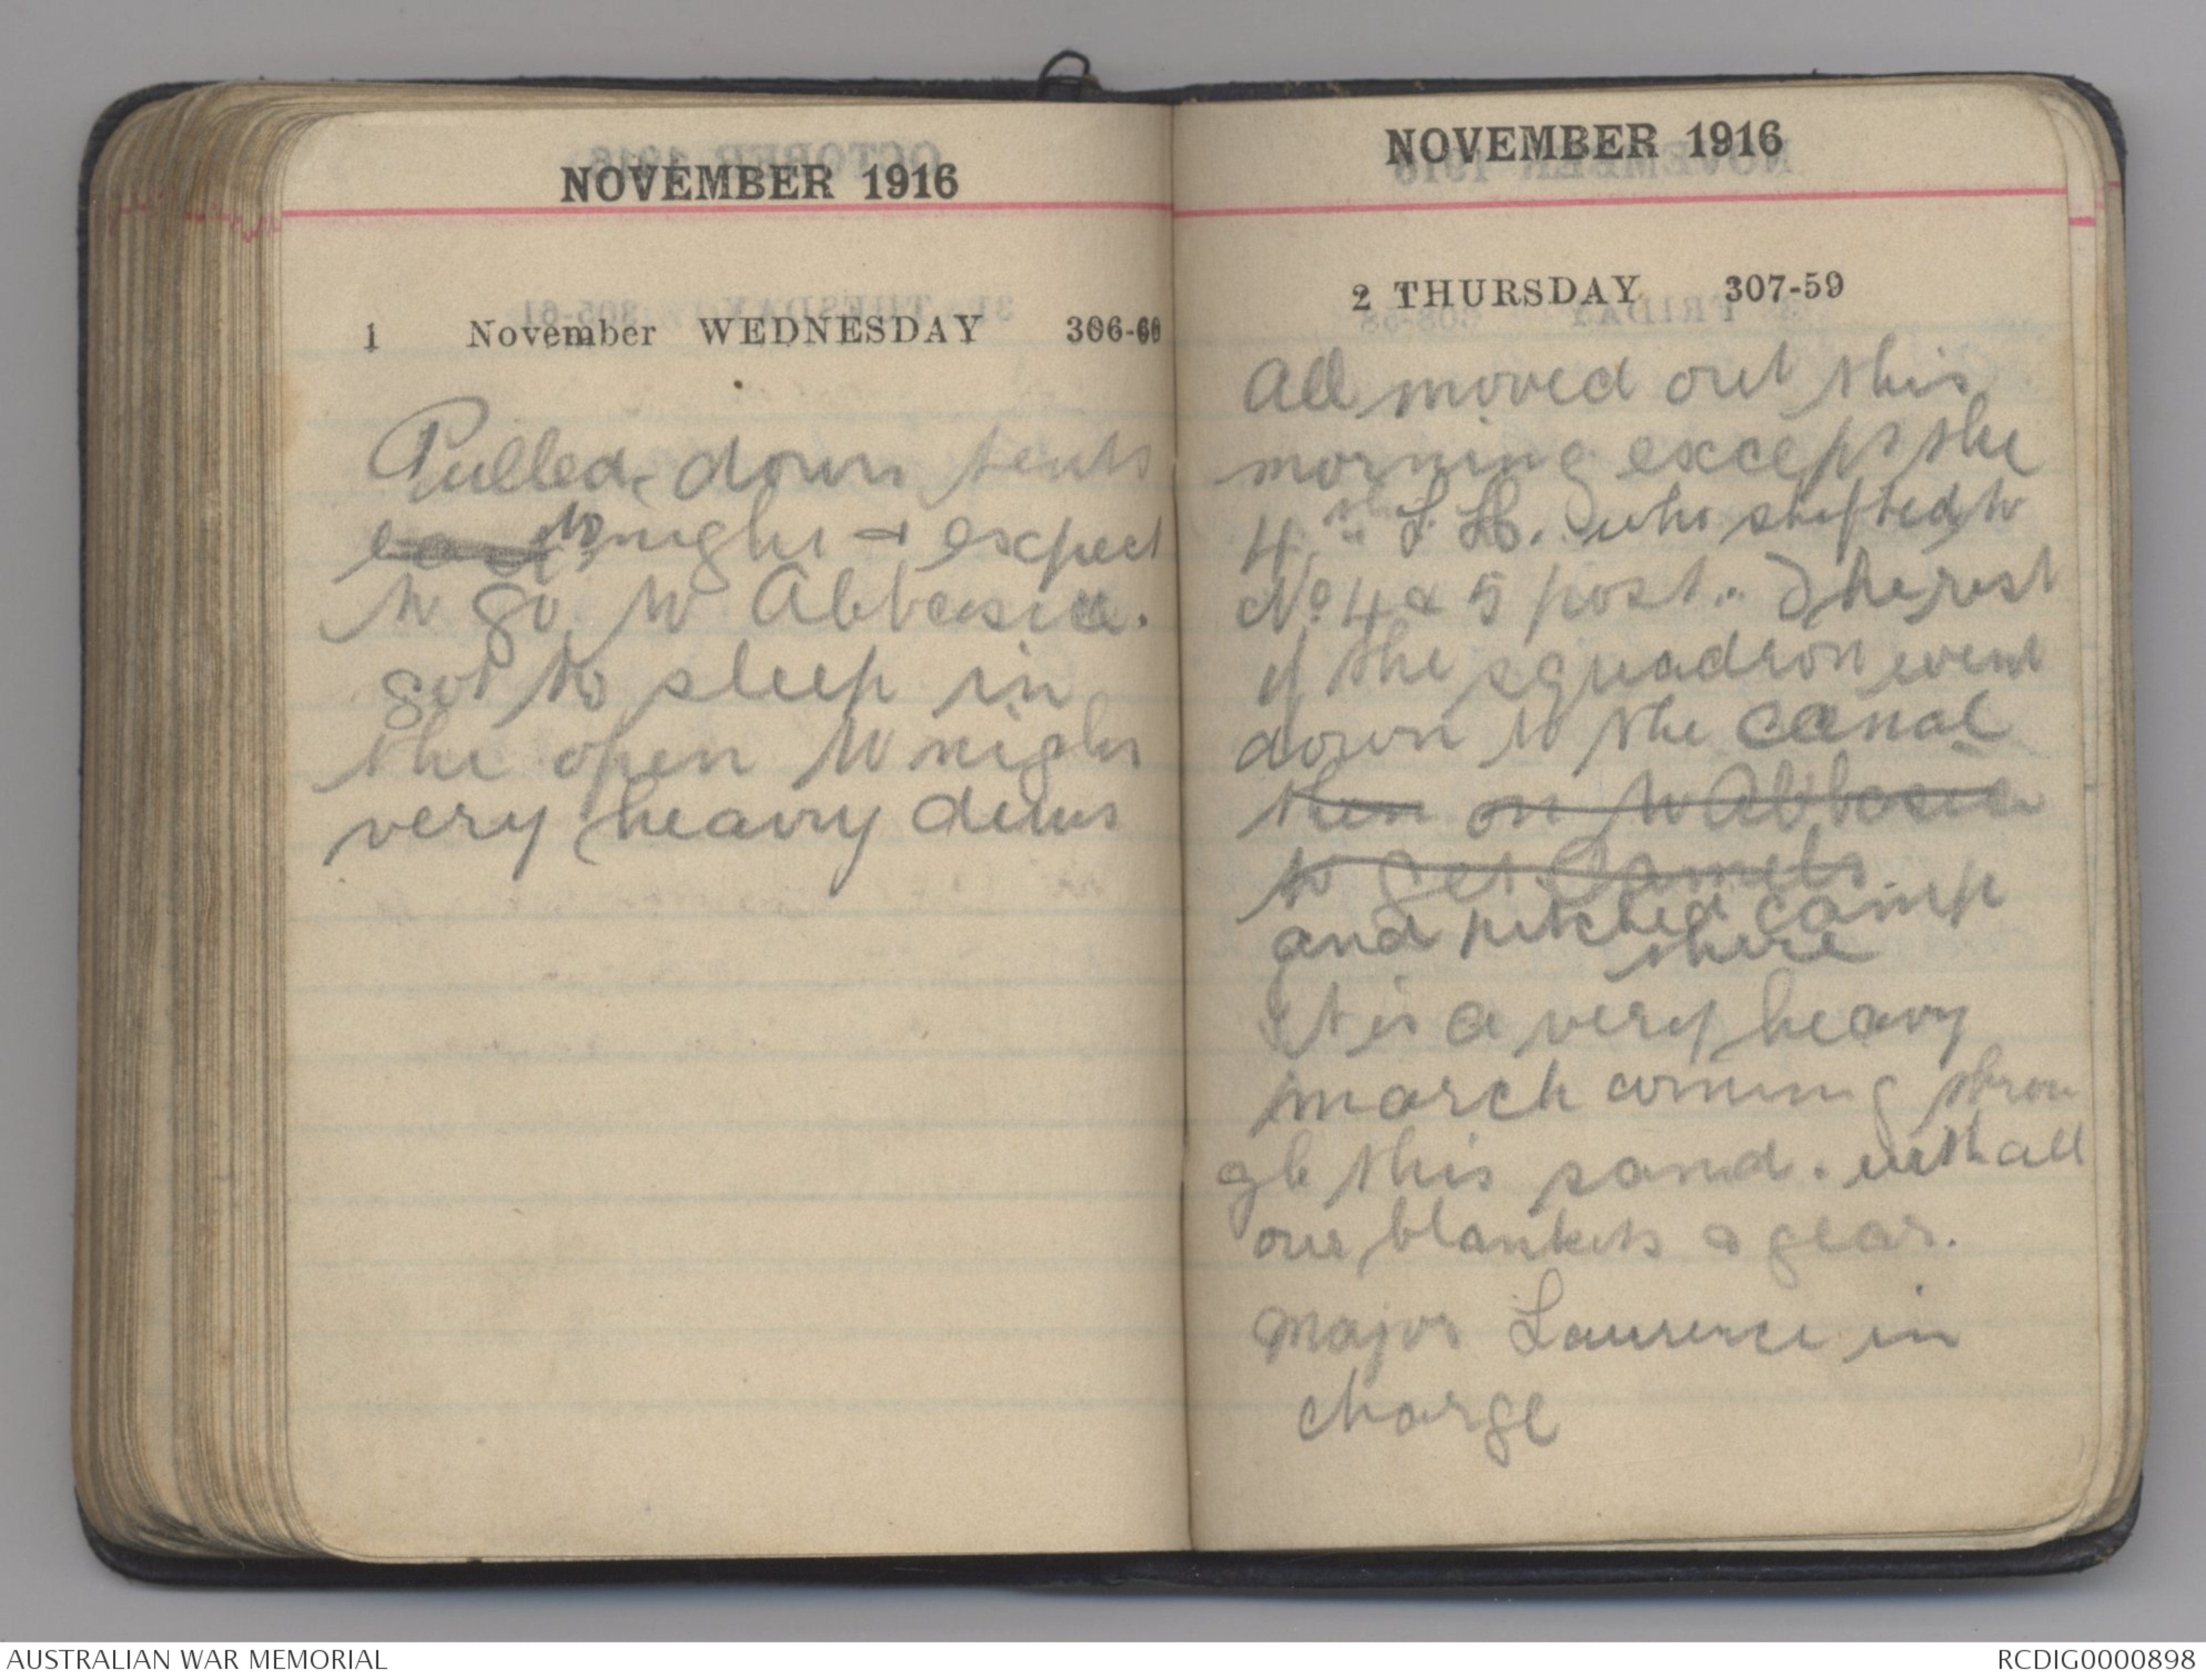 NOVEMBER 1916
1 November WEDNESDAY 306-60
Pulled down tents
to night & expect
to go to Abbasia.
got to sleep in
the open to night
very heavy dews
NOVEMBER 1916
2 THURSDAY 307-59
All moved out this
morning except the
4th L H. who shifted to
No 4 & 5 post. The rest
of the squadron went
down to the canal
then on to Abbasia
to get Camels
and pitched camp
there
It is a very heavy
march coming throu
gh this sand. with all
our blankets & gear.
Major Laurence in
charge
AUSTRALIAN WAR MEMORIAL
RCDIG0000898